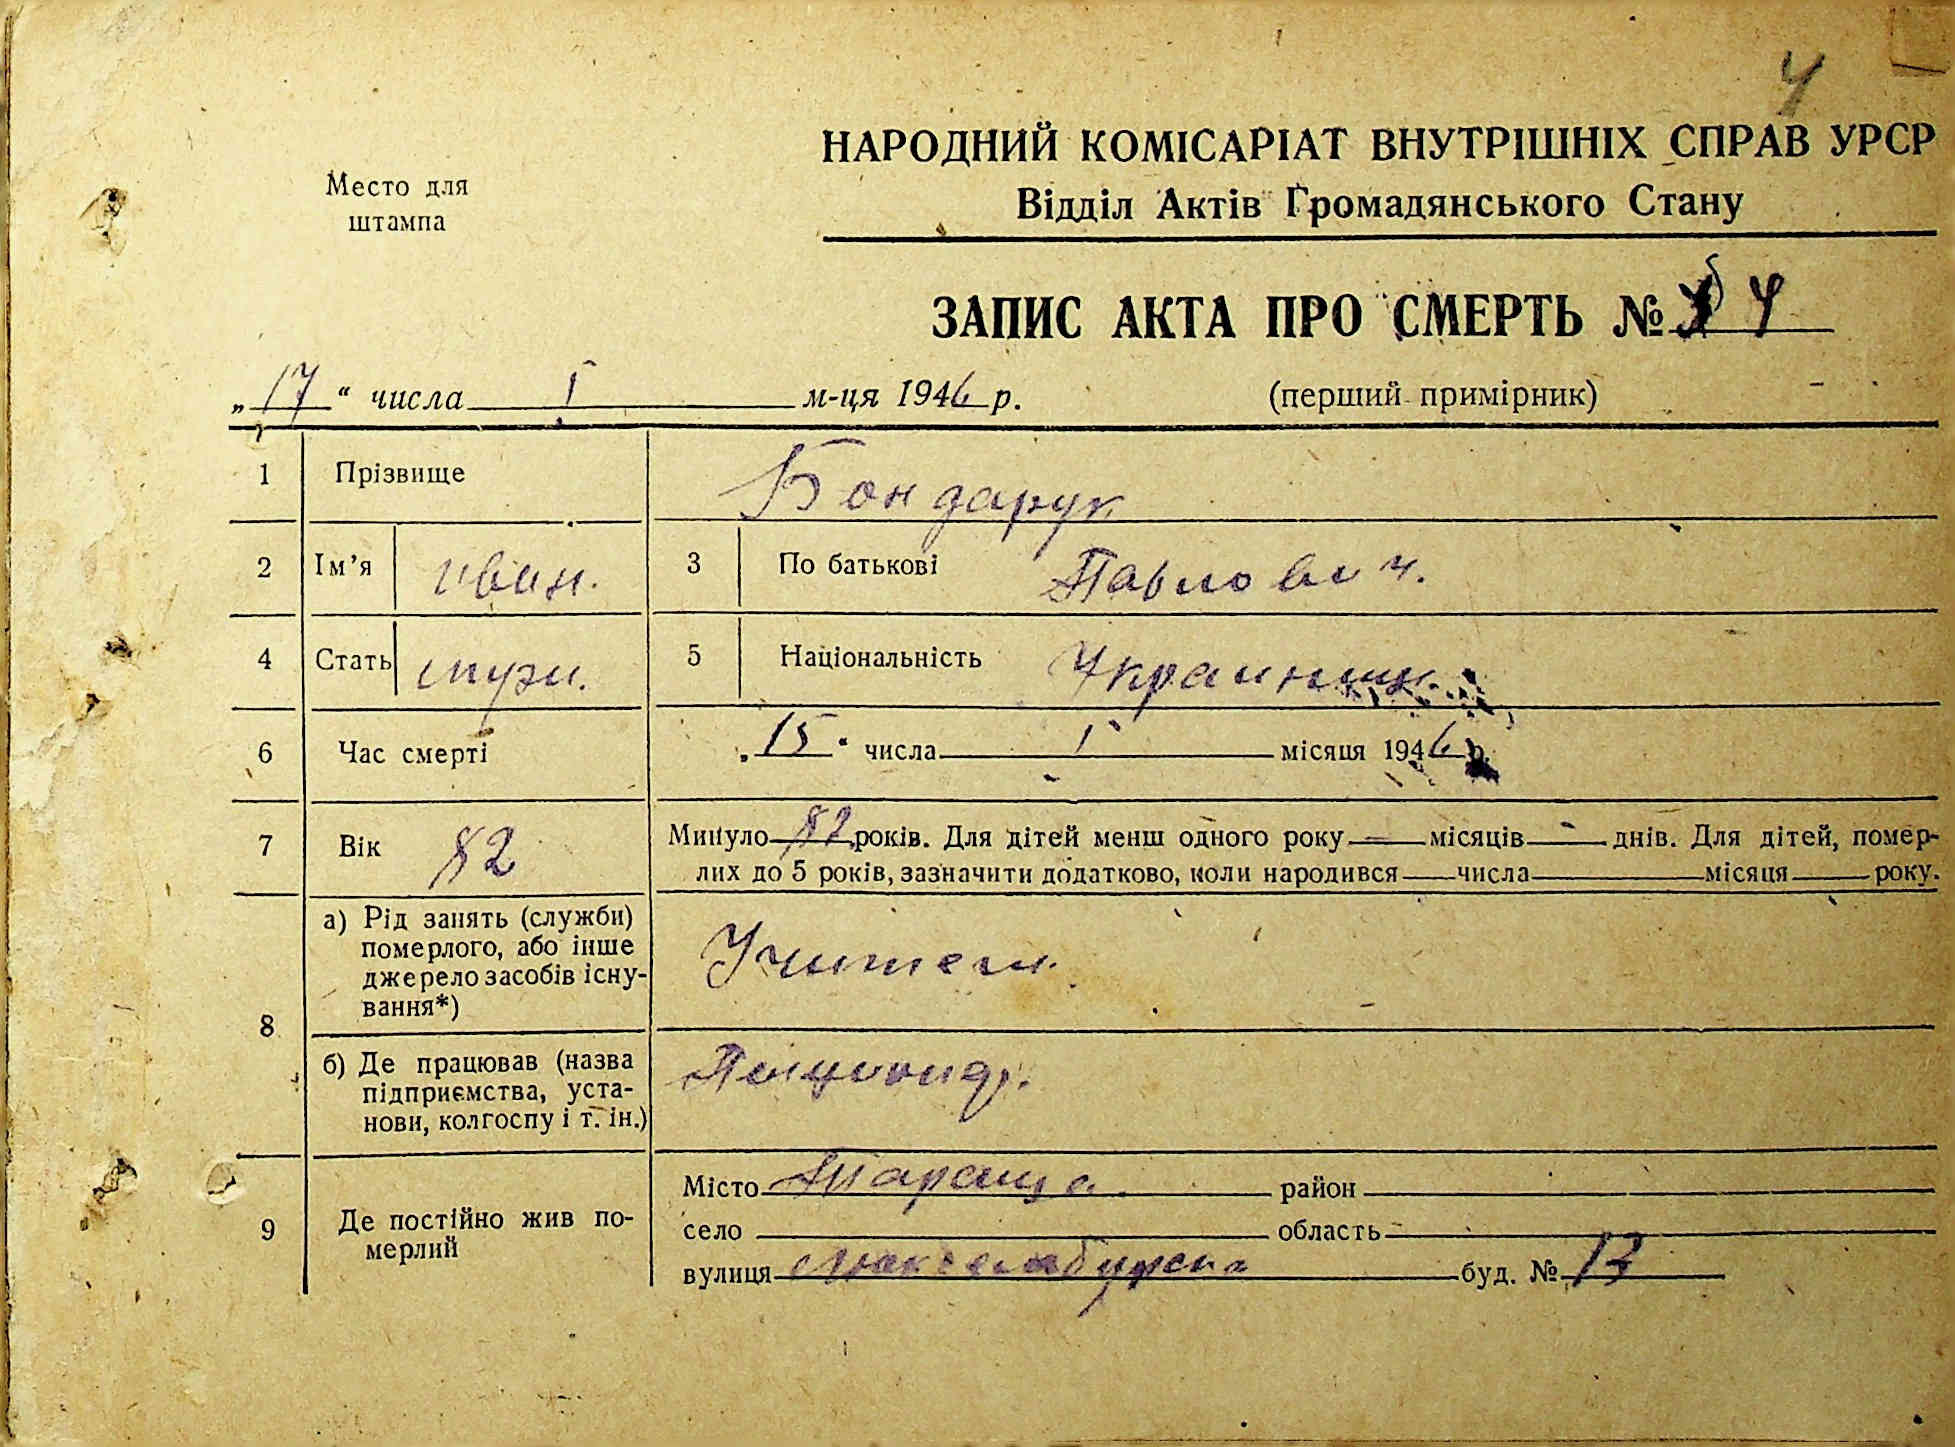 4
НАРОДНИЙ КОМІСАРІАТ ВНУТРІШНІХ СПРАВ УРСР
Место для
штампа
Відділ Актів Громадянського Стану
ЗАПИС АКТА ПРО СМЕРТЬ № 4
„17“ числа I м-ця 1946 р. (перший примірник)
1 Прізвище Бондарук
2 Ім’я иван. 3 По батькові Павлович.
4 Стать муж. 5 Національність Украинец.
6 Час смерті „15“ числа I місяця 1946 р.
7 Вік 82 Минуло 82 років. Для дітей менш одного року — місяців — днів. Для дітей, помер-
лих до 5 років, зазначити додатково, коли народився числа місяця року.
8 а) Рід занять (служби) померлого, або інше джерело засобів існу-вання*) Учител.
б) Де працював (назва підприємства, уста-нови, колгоспу і т. ін.)
9 Де постійно жив по-мерлий Місто Тараща район
село область
вулиця буд. № 13